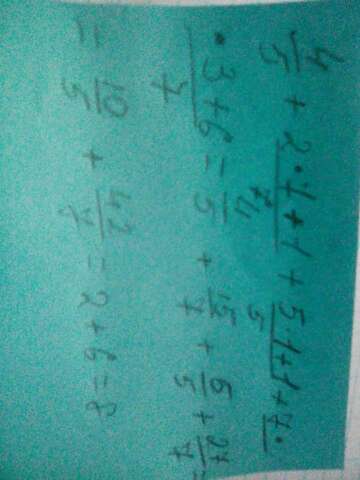 4/5 + (2·7+1)/7 + (5·1+1)/5 + 7·
·3+6/7 = 4/5 + 15/7 + 6/5 + 27/7 =
= 10/5 + 42/7 = 2+6=8